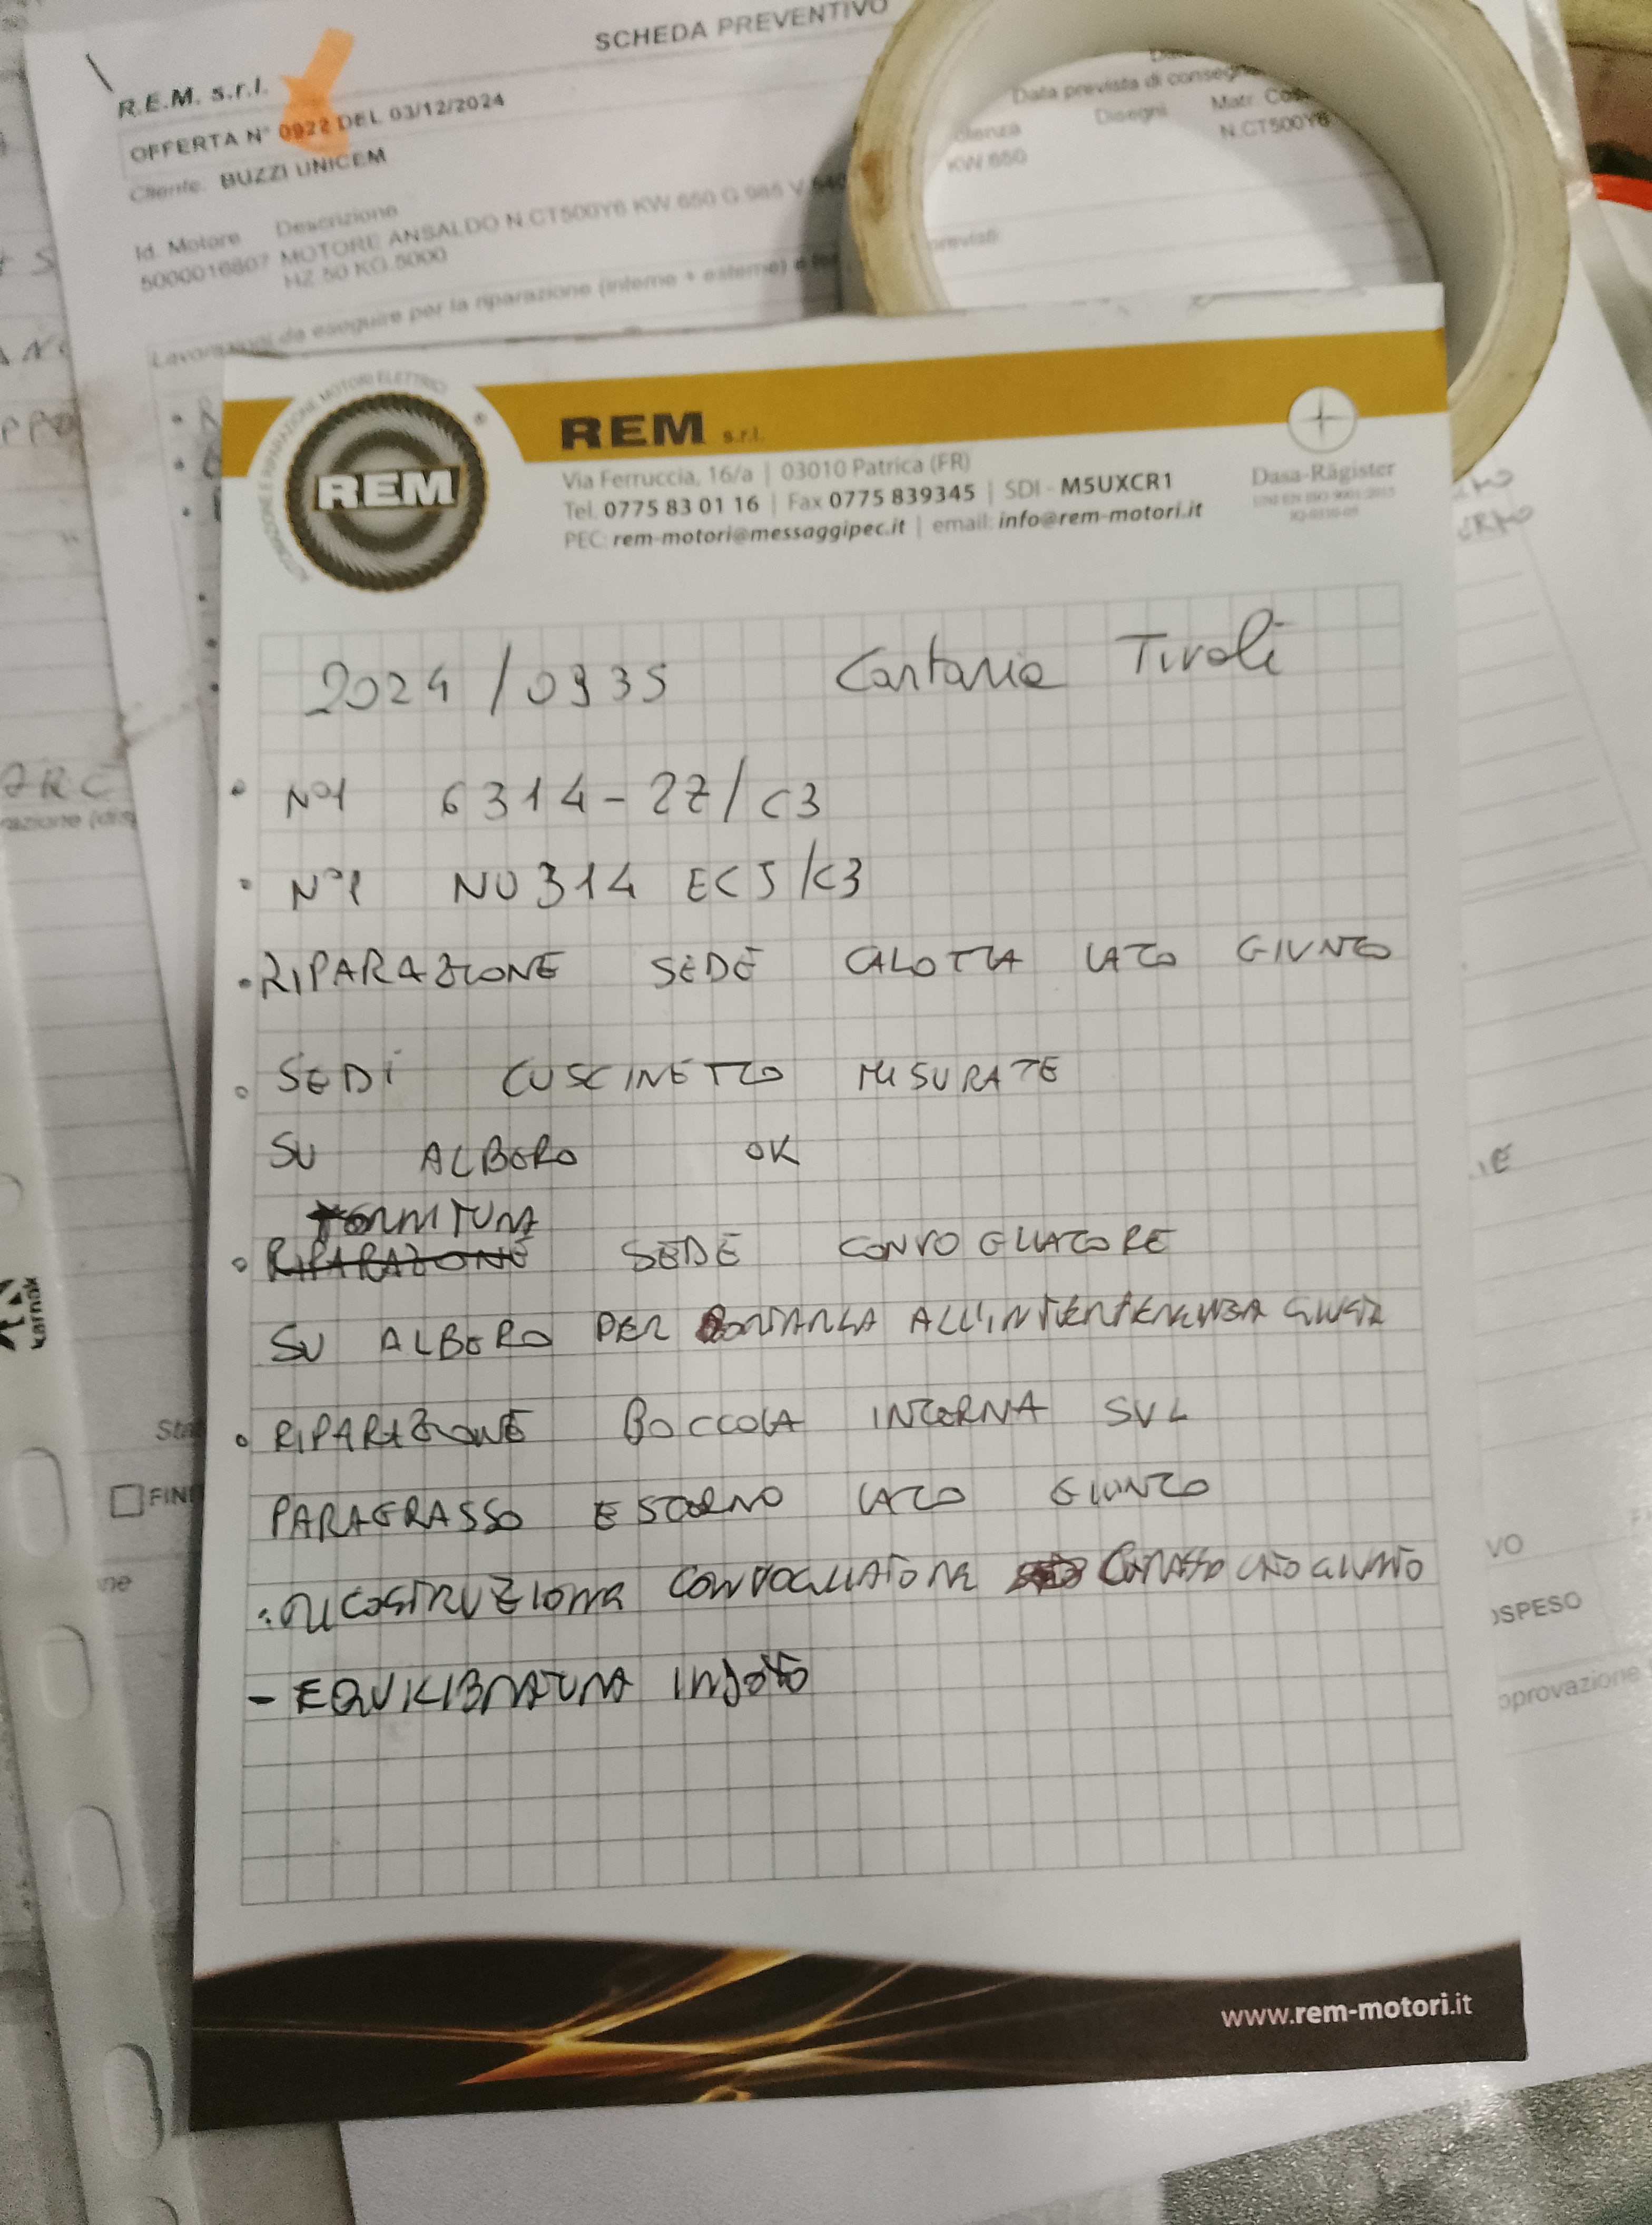 SCHEDA PREVENTIVO
R.E.M. s.r.l.
OFFERTA N° 0922 DEL 03/12/2024
Cliente: BUZZI UNICEM
Id. Motore Descrizione
5000016807 MOTORE ANSALDO N.CT500Y6 KW.650 G.985 V.
HZ.50 KG.5000
Lavorazioni da eseguire per la riparazione (interne + esterne)
Data prevista di consegna
Disegni Matr.
KW.650 N.CT500Y6
previsti
COSTRUZIONE E RIPARAZIONE MOTORI ELETTRICI
REM
REM s.r.l.
Via Ferruccia, 16/a | 03010 Patrica (FR)
Tel. 0775 83 01 16 | Fax 0775 839345 | SDI - M5UXCR1
PEC: rem-motori@messaggipec.it | email: info@rem-motori.it
Dasa-Rägister
UNI EN ISO 9001:2015
2024/0935 Cartaria Tivoli
• N°1 6314-2Z/C3
• N°1 NU314 ECJ/C3
• RIPARAZIONE SEDE CALOTTA LATO GIUNTO
• SEDI CUSCINETTO MISURATE
SU ALBERO OK
FORNITURA
• RIPARAZIONE SEDE CONVOGLIATORE
SU ALBERO PER PORTARLA ALL'INTERFERENZA GIUSTA
• RIPARAZIONE BOCCOLA INTERNA SUL
PARAGRASSO ESTERNO LATO GIUNTO
: RICOSTRUZIONE CONVOGLIATORE LATO GIUNTO
- EQUILIBRATURA INDOTTO
www.rem-motori.it
karnak
FINE
OSPESO
pprovazione